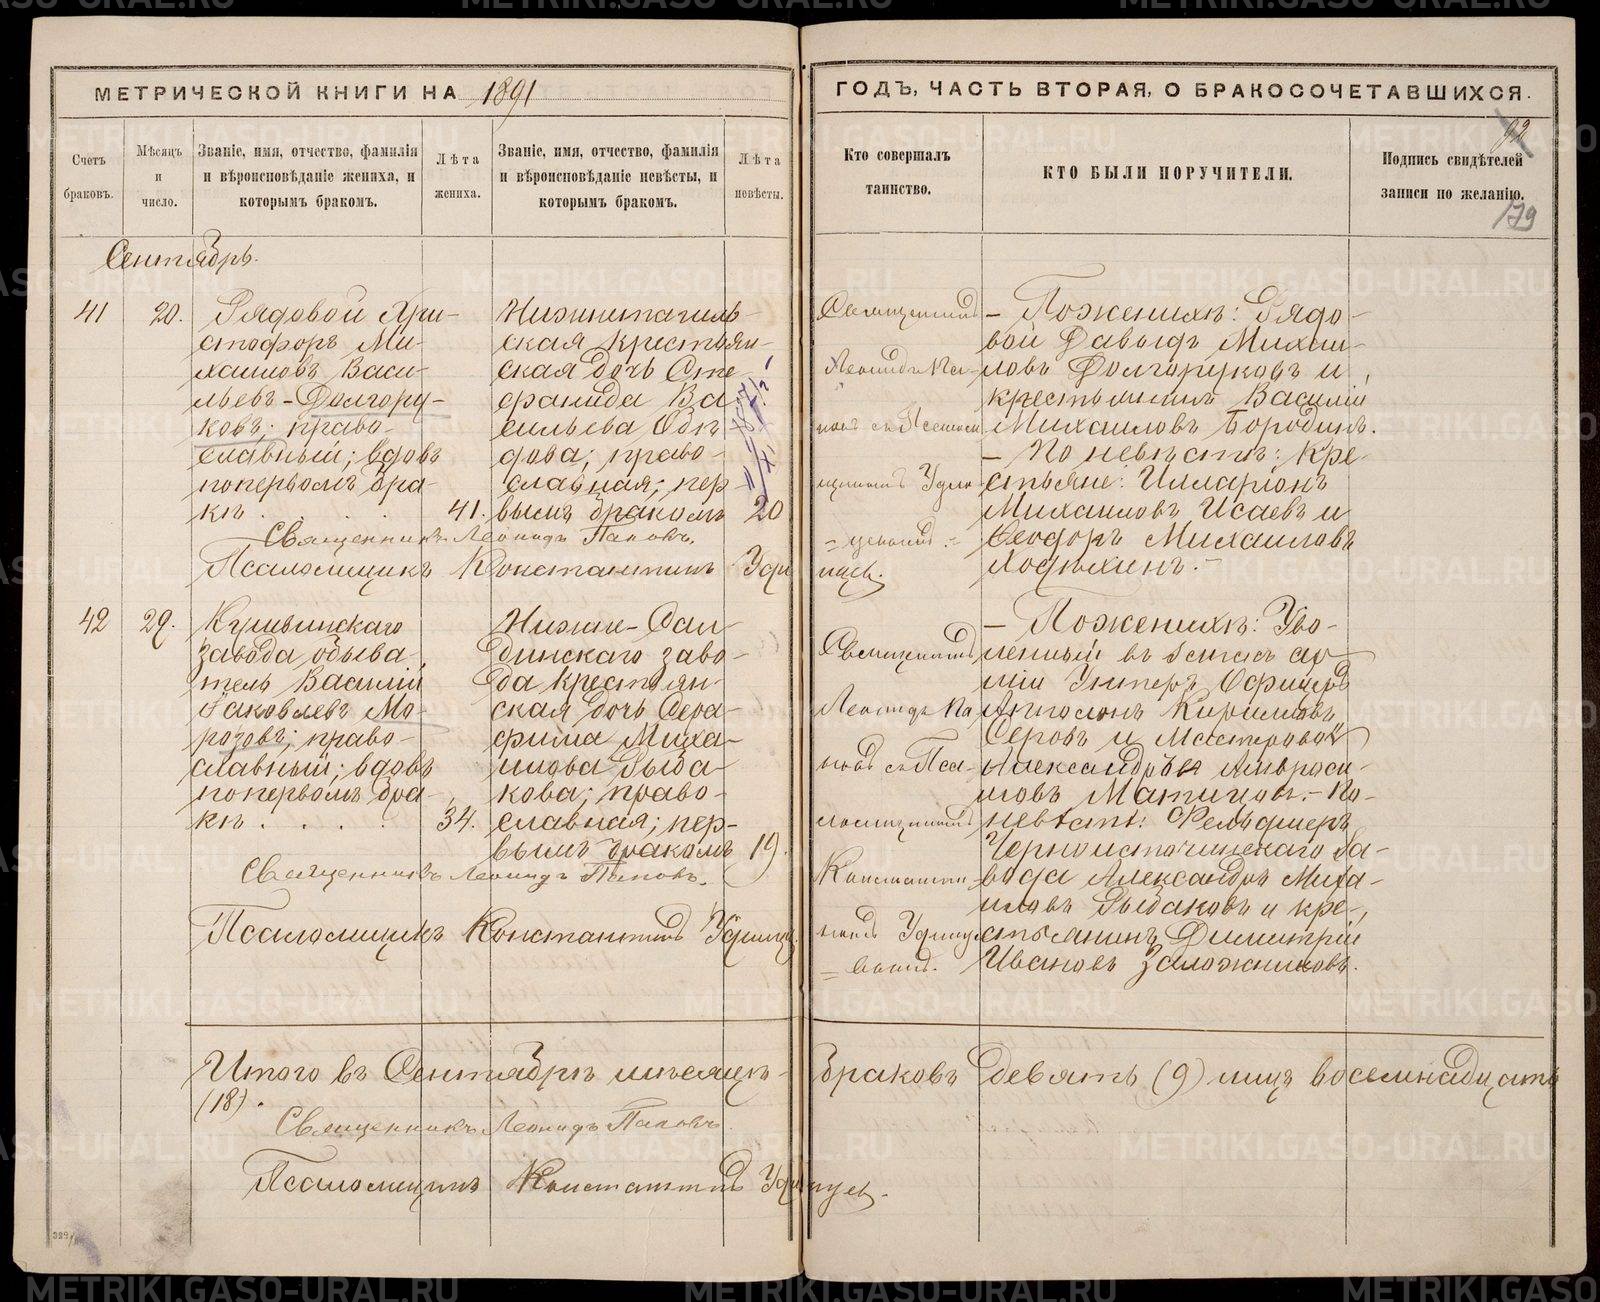 МЕТРИЧЕСКОЙ КНИГИ НА 1891
ГОДЪ, ЧАСТЬ ВТОРАЯ, О БРАКОСОЧЕТАВШИХСЯ.
92
179
Счетъ браковъ.
Мѣсяцъ и число.
Званіе, имя, отчество, фамилія и вѣроисповѣданіе жениха, и которымъ бракомъ.
Лѣта жениха.
Званіе, имя, отчество, фамилія и вѣроисповѣданіе невѣсты, и которымъ бракомъ.
Лѣта невѣсты.
Кто совершалъ таинство.
КТО БЫЛИ ПОРУЧИТЕЛИ.
Подпись свидѣтелей записи по желанію.
Сентябрь.
41
20.
Рядовой Хри-
стофоръ Ми-
хаиловъ Васи-
льевъ-Долгору-
ковъ; право-
славный; вдовъ
по первомъ бра-
кѣ . . . .
41.
Нижнетагиль-
ская крестьян-
ская дочь Сте-
фанида Ва
сильева
право-
славная; пер-
вымъ бракомъ
20
Священникъ
Леонидъ По-
повъ съ Псалом
щикомъ Удин
цовымъ
– По женихѣ: Рядо-
вой Давыдъ Михаи-
ловъ Долгоруковъ и
крестьянинъ Василій
Михаиловъ Бородинъ.
– По невѣстѣ: Кре-
стьяне: Илларіонъ
Михаиловъ Исаевъ и
Ѳеодоръ Михаиловъ
Священникъ Леонидъ Поповъ.
Псаломщикъ Константинъ
42
29.
Кушвинскаго
завода обыва-
тель Василій
Яковлевъ Мо-
розовъ; право-
славный; вдовъ
по первомъ бра-
кѣ . . . .
34.
Нижне-Сал-
динскаго заво-
да крестьян-
ская дочь Сера-
фима Миха-
илова Рыба-
кова; право-
славная; пер-
вымъ бракомъ
19.
Священникъ
Леонидъ По
повъ съ Пса-
ломщикомъ
Константи-
номъ
– По женихѣ: Уво-
ленный въ запасъ ар-
міи Унтеръ Офицеръ
Кириловъ
Серовъ и Мастеровой
Александръ Амвроси-
мовъ – По
невѣстѣ: Фельдшеръ
Черноисточинскаго за-
вода Александръ Миха-
иловъ Рыбаковъ и кре-
стьянинъ Димитрій
Ивановъ Заложниковъ.
Священникъ Леонидъ Поповъ.
Псаломщикъ Константинъ
Итого въ Сентябрѣ мѣсяцѣ браковъ девять (9) лицъ восемнадцать
(18).
Священникъ Леонидъ Поповъ.
Псаломщикъ Константинъ
METRIKI.GASO-URAL.RU